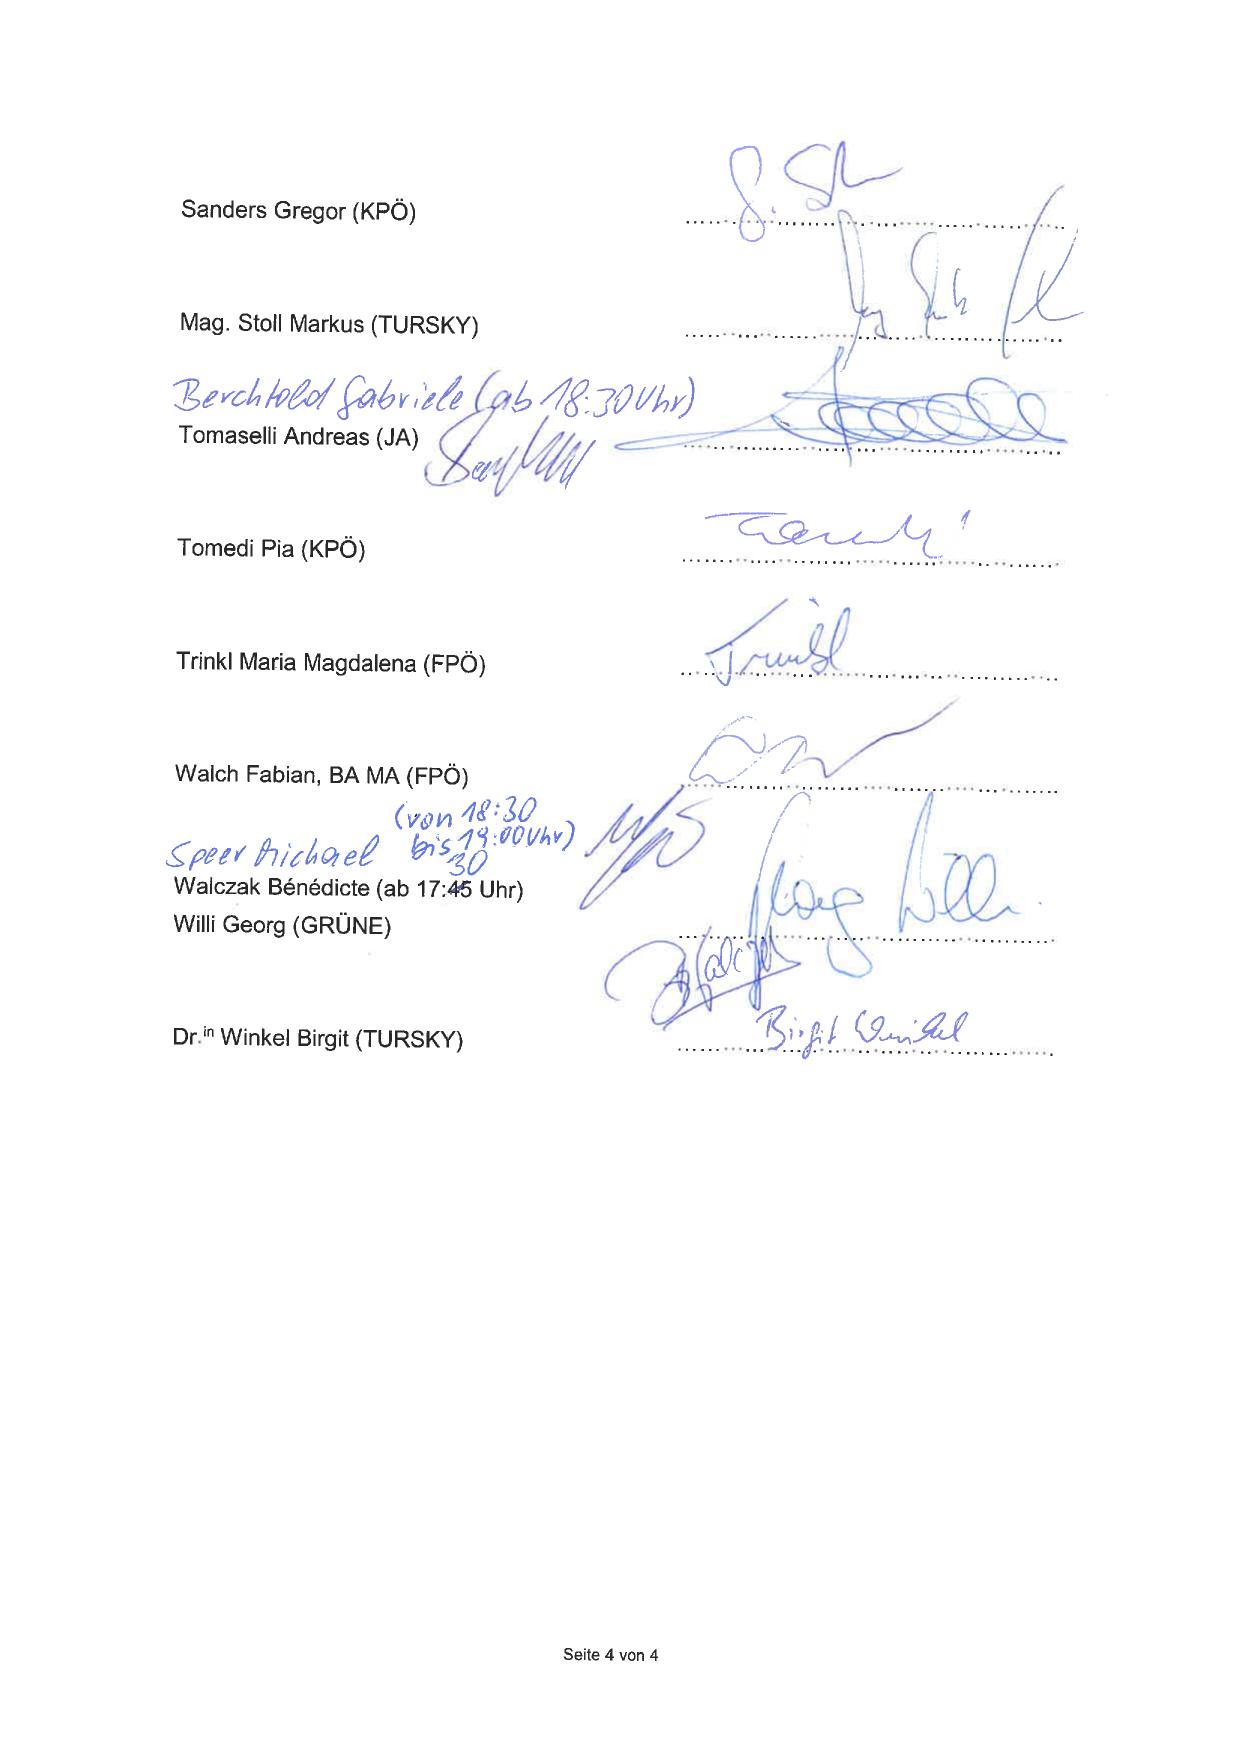 Sanders Gregor (KPÖ)
Mag. Stoll Markus (TURSKY)
Berchtold Gabriele (ab 18:30 Uhr)
Tomaselli Andreas (JA)
Tomedi Pia (KPÖ)
Trinkl Maria Magdalena (FPÖ)
Trinkl
Walch Fabian, BA MA (FPÖ)
(von 18:30
Speer Michael bis 19:00 Uhr)
30
Walczak Bénédicte (ab 17:45 Uhr)
Willi Georg (GRÜNE)
Georg Willi
Dr.in Winkel Birgit (TURSKY)
Birgit Winkel
Seite 4 von 4